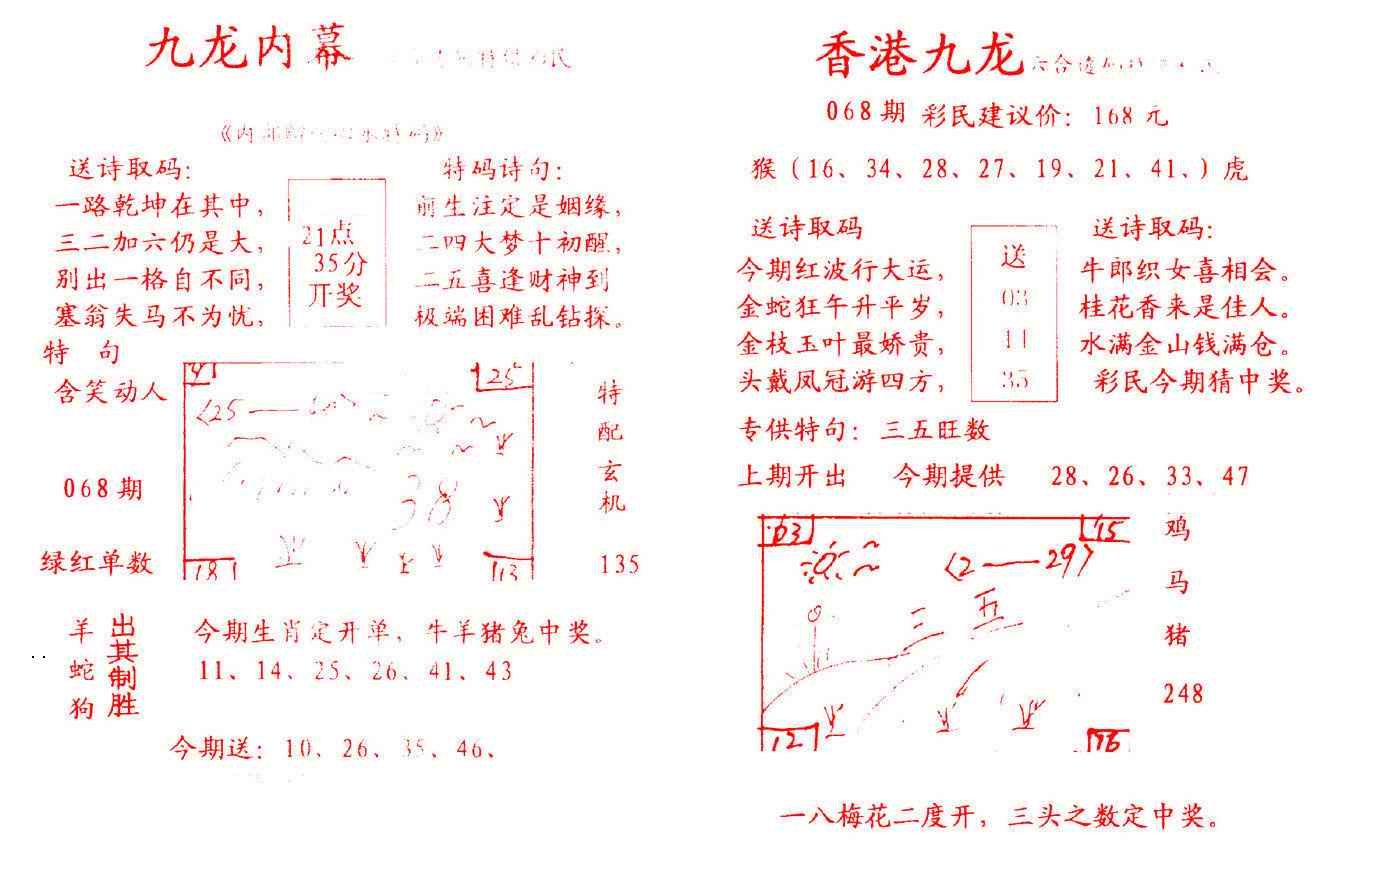 九龙内幕
送诗取码：
一路乾坤在其中，
三二加六仍是大，
别出一格自不同，
塞翁失马不为忧，
21点
35分
开奖
特码诗句：
前生注定是姻缘，
二四大梦十初醒，
二五喜逢财神到
极端困难乱钻探。
特 句
含笑动人
068期
绿红单数
25
〈25
38
18
13
特
配
玄
机
135
羊
蛇
狗
出其制胜
今期生肖定开单，牛羊猪兔中奖。
11、14、25、26、41、43
今期送：10、26、35、46、
香港九龙
068期 彩民建议价：168元
猴（16、34、28、27、19、21、41、）虎
送诗取码
今期红波行大运，
金蛇狂午升平岁，
金枝玉叶最娇贵，
头戴凤冠游四方，
送
03
11
35
送诗取码：
牛郎织女喜相会。
桂花香来是佳人。
水满金山钱满仓。
彩民今期猜中奖。
专供特句：三五旺数
上期开出 今期提供 28、26、33、47
03
15
〈2——29〉
三 五
12
16
鸡
马
猪
248
一八梅花二度开，三头之数定中奖。